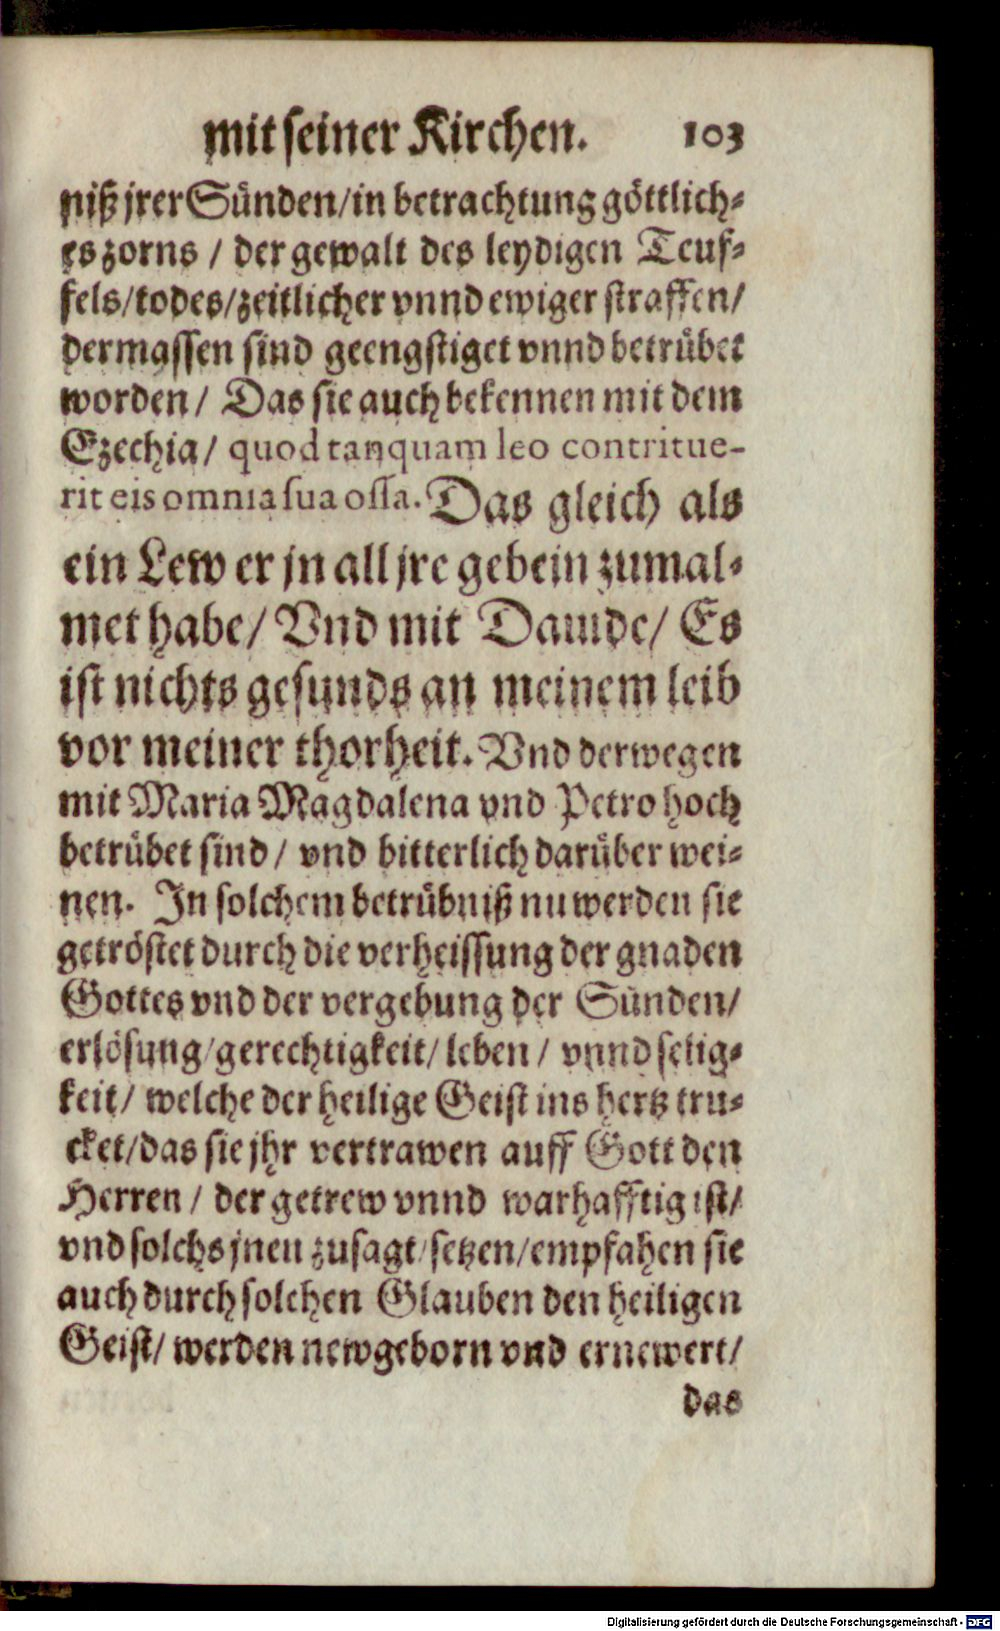 mit seiner Kirchen. 103
niß jrer Sünden/in betrachtung göttlich⸗
es zorns / der gewalt des leydigen Teuf⸗
fels/todes/zeitlicher vnnd ewiger straffen/
dermassen sind geengstiget vnnd betrübet
worden/ Das sie auch bekennen mit dem
Ezechia/ quod tanquam leo contritue-
rit eis omnia sua ossa. Das gleich als
ein Lew er jn all jre gebein zumal⸗
met habe/ Vnd mit Dauide/ Es
ist nichts gesunds an meinem leib
vor meiner thorheit. Vnd derwegen
mit Maria Magdalena vnd Petro hoch
betrübet sind/ vnd bitterlich darüber wei⸗
nen. In solchem betrübniß nu werden sie
getröstet durch die verheissung der gnaden
Gottes vnd der vergebung der Sünden/
erlösung/gerechtigkeit/ leben/ vnnd selig⸗
keit/ welche der heilige Geist ins hertz tru⸗
cket/das sie jhr vertrawen auff Gott den
Herren/ der getrew vnnd warhafftig ist/
vnd solchs jnen zusagt/setzen/empfahen sie
auch durch solchen Glauben den heiligen
Geist/ werden newgeborn vnd ernewert/
das
Digitalisierung gefördert durch die Deutsche Forschungsgemeinschaft - DFG